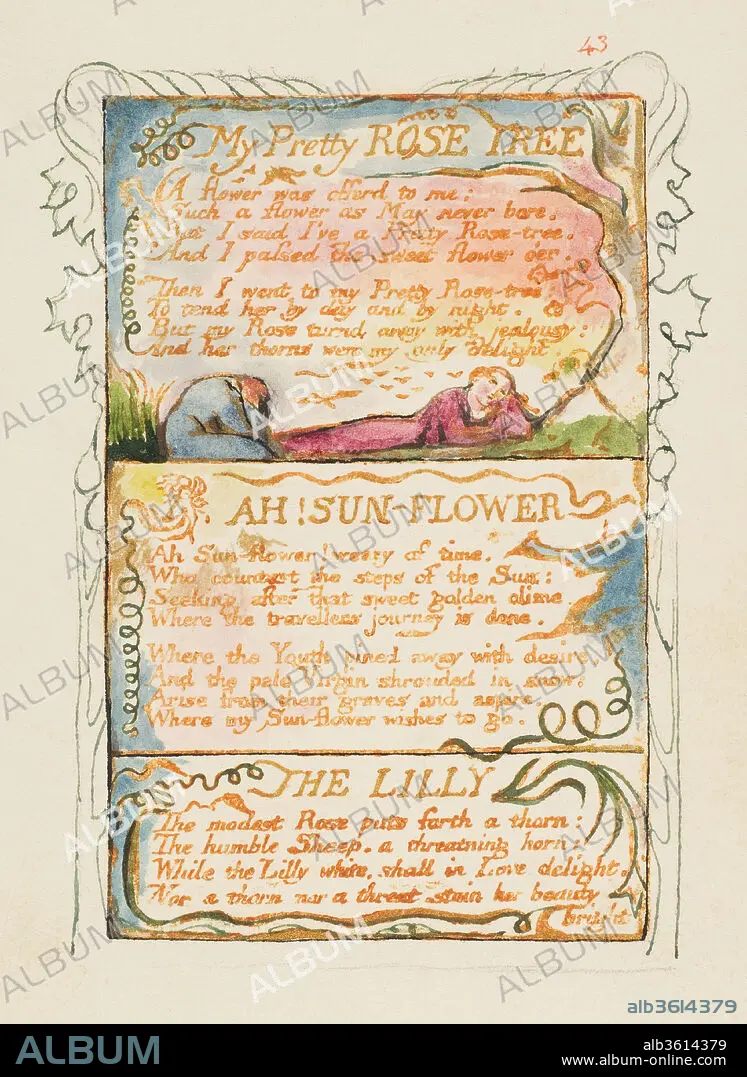 43
My Pretty ROSE TREE
A flower was offerd to me:
Such a flower as May never bore.
But I said I've a Pretty Rose-tree.
And I passed the sweet flower o'er.
Then I went to my Pretty Rose-tree:
To tend her by day and by night.
But my Rose turnd away with jealousy:
And her thorns were my only delight.
AH! SUN-FLOWER
Ah Sun-flower! weary of time.
Who countest the steps of the Sun:
Seeking after that sweet golden clime
Where the travellers journey is done.
Where the Youth pined away with desire,
And the pale Virgin shrouded in snow:
Arise from their graves and aspire,
Where my Sun-flower wishes to go.
THE LILLY
The modest Rose puts forth a thorn:
The humble Sheep, a threatning horn:
While the Lilly white, shall in Love delight,
Nor a thorn nor a threat stain her beauty
bright
ALBUM
alb3614379
ALBUM
alb3614379
www.album-online.com